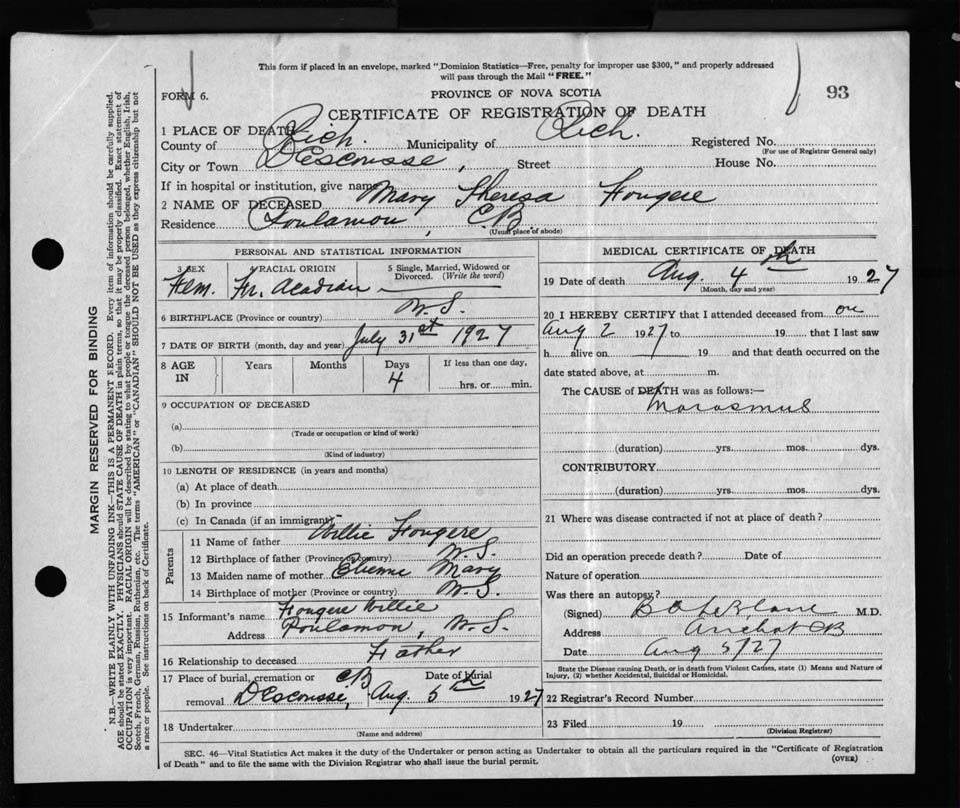 This form if placed in an envelope, marked "Dominion Statistics—Free, penalty for improper use $300," and properly addressed
will pass through the Mail "FREE."
FORM 6.
PROVINCE OF NOVA SCOTIA
93
CERTIFICATE OF REGISTRATION OF DEATH
1 PLACE OF DEATH
County of Rich. Municipality of Rich. Registered No.
(For use of Registrar General only)
City or Town D'Escousse, Street House No.
If in hospital or institution, give name
2 NAME OF DECEASED Mary Theresa Fougere
Residence Poulamon, C.B.
(Usual place of abode)
PERSONAL AND STATISTICAL INFORMATION
3 SEX Fem. 4 RACIAL ORIGIN Fr. Acadian 5 Single, Married, Widowed or Divorced. (Write the word) —
6 BIRTHPLACE (Province or country) N.S.
7 DATE OF BIRTH (month, day and year) July 31st 1927
8 AGE IN Years Months Days 4 If less than one day, hrs. or min.
9 OCCUPATION OF DECEASED
(a)
(Trade or occupation or kind of work)
(b)
(Kind of industry)
10 LENGTH OF RESIDENCE (in years and months)
(a) At place of death
(b) In province
(c) In Canada (if an immigrant)
Parents
11 Name of father Willie Fougere
12 Birthplace of father (Province or country) N.S.
13 Maiden name of mother Etienne Mary
14 Birthplace of mother (Province or country) N.S.
15 Informant's name Fougere Willie
Address Poulamon, N.S.
16 Relationship to deceased Father
17 Place of burial, cremation or removal D'Escousse, CB Date of burial Aug. 5th 1927
18 Undertaker
(Name and address)
MEDICAL CERTIFICATE OF DEATH
19 Date of death Aug. 4th 1927
(Month, day and year)
20 I HEREBY CERTIFY that I attended deceased from on
Aug 2 1927 to 19 that I last saw
h alive on 19 and that death occurred on the
date stated above, at m.
The CAUSE of DEATH was as follows:—
Marasmus
(duration) yrs. mos. dys.
CONTRIBUTORY
(duration) yrs. mos. dys.
21 Where was disease contracted if not at place of death?
Did an operation precede death? Date of
Nature of operation
Was there an autopsy?
(Signed) B A LeBlanc M.D.
Address Arichat CB
Date Aug 5/27
State the Disease causing Death, or in death from Violent Causes, state (1) Means and Nature of
Injury, (2) whether Accidental, Suicidal or Homicidal.
22 Registrar's Record Number
23 Filed 19
(Division Registrar)
SEC. 46—Vital Statistics Act makes it the duty of the Undertaker or person acting as Undertaker to obtain all the particulars required in the "Certificate of Registration
of Death" and to file the same with the Division Registrar who shall issue the burial permit.
(OVER)
MARGIN RESERVED FOR BINDING
N.B.—WRITE PLAINLY WITH UNFADING INK—THIS IS A PERMANENT RECORD. Every item of information should be carefully supplied.
AGE should be stated EXACTLY. PHYSICIANS should STATE CAUSE OF DEATH in plain terms, so that it may be properly classified. Exact statement of
OCCUPATION is very important. RACIAL ORIGIN will be described by stating to what people or tongue the deceased person belonged, whether English, Irish,
Scotch, French, German, Russian, Ruthenian, etc. The terms "AMERICAN" or "CANADIAN" SHOULD NOT BE USED as they express citizenship but not
a race or people. See instructions on back of Certificate.